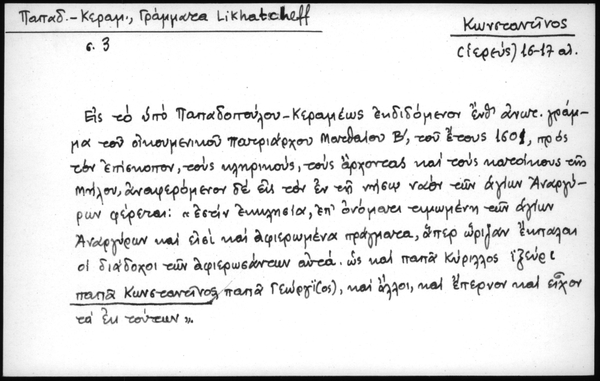 Παπαδ.-Κεραμ., Γράμματα Likhatcheff
Κωνσταντῖνος
σ. 3
(ἱερεύς) 16-17 αἰ.
Εἰς τὸ ὑπὸ Παπαδοπούλου-Κεραμέως ἐκδιδόμενον ἔνθ' ἀνωτ. γράμ-
μα τοῦ οἰκουμενικοῦ πατριάρχου Ματθαίου Β΄, τοῦ ἔτους 1601, πρὸς
τὸν ἐπίσκοπον, τοὺς κληρικούς, τοὺς ἄρχοντας καὶ τοὺς κατοίκους τῆς
Μήλου, ἀναφερόμενον δὲ εἰς τὸν ἐν τῇ νήσῳ ναὸν τῶν ἁγίων Ἀναργύ-
ρων φέρεται: «ἐστὶν ἐκκλησία, ἐπ' ὀνόματι τιμωμένη τῶν ἁγίων
Ἀναργύρων καὶ εἰσὶ καὶ ἀφιερωμένα πράγματα, ἅπερ ὥριζαν ἔκπαλαι
οἱ διάδοχοι τῶν ἀφιερωσάντων αὐτά. ὡς καὶ παπᾶ Κύριλλος
παπᾶ Κωνσταντῖνος παπᾶ Γεώργι(ος), καὶ ἄλλοι, καὶ ἔπερνον καὶ εἶχον
τὰ ἐκ τούτων».